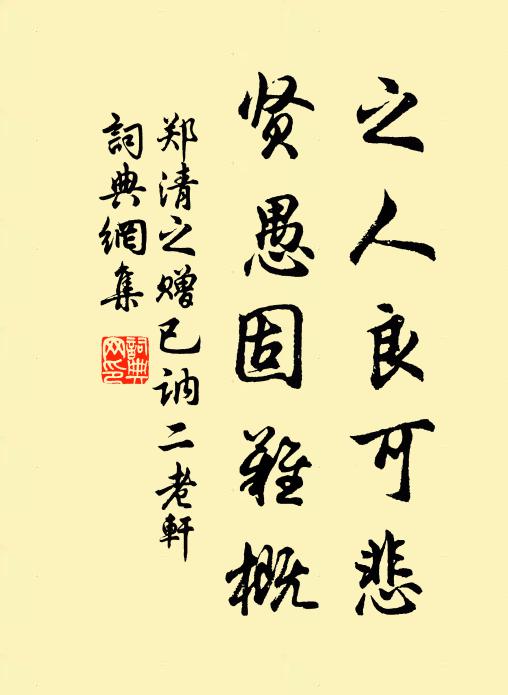 之人良可悲
贤愚固难概
郑清之赠已讷二老軒
詞典網集